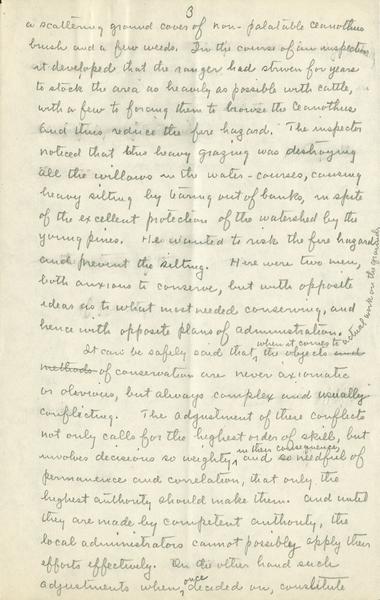 3
a scattering ground cover of non-palatable ceanothus
brush and a few weeds. In the course of an inspection
it developed that the ranger had striven for years
to stock the area as heavily as possible with cattle,
with a few to forcing them to browse the Ceanothus
and thus reduce the fire hazard. The inspector
noticed that this heavy grazing was destroying
all the willows in the water-courses, causing
heavy silting by tearing out of banks, in spite
of the excellent protection of the watershed by the
young pines. He wanted to risk the fire hazard
and prevent the silting. Here were two men,
both anxious to conserve, but with opposite
ideas as to what most needed conserving, and
hence with opposite plans of administration.
It can be safely said that, when it comes to actual work on the ground, the objects and
methods of conservation are never axiomatic
or obvious, but always complex and usually
conflicting. The adjustment of these conflicts
not only calls for the highest order of skill, but
involves decisions so weighty in their consequences, and so needful of
permanence and correlation, that only the
highest authority should make them. And until
they are made by competent authority, the
local administrators cannot possibly apply their
efforts effectively. On the other hand such
adjustments when once decided on, constitute